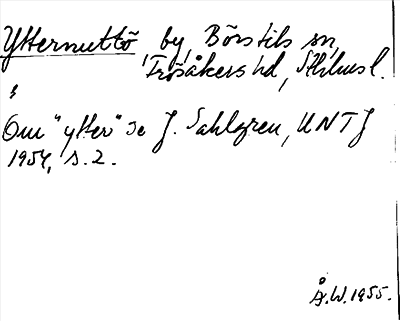 Ytternuttö, by, Börstils sn,
Frösåkers hd, Sthlms l.
Om "ytter" se J. Sahlgren, UNTJ
1954, s. 2.
Å.W. 1955.